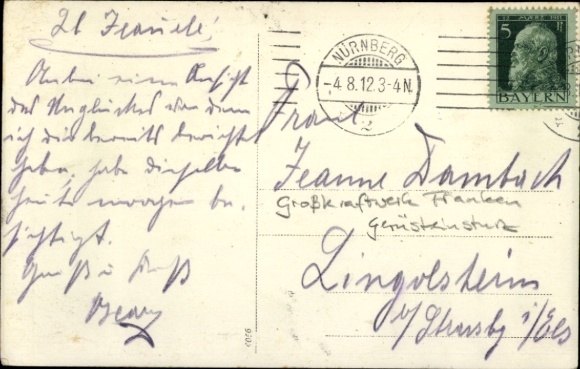 Lb Frauele!
Anbei eine Ansicht
des Unglückes von dem
ich dir bereits berichtet
habe, habe dieselbe
heute morgen be-
sichtigt.
Gruß u Kuß
NÜRNBERG
-4.8.12.3-4N.
2
5
BAYERN
Frau
Jeanne Dambach
Großkraftwerk Franken
Gerüsteinsturz
Lingolsheim
b/Strasbg i/Els